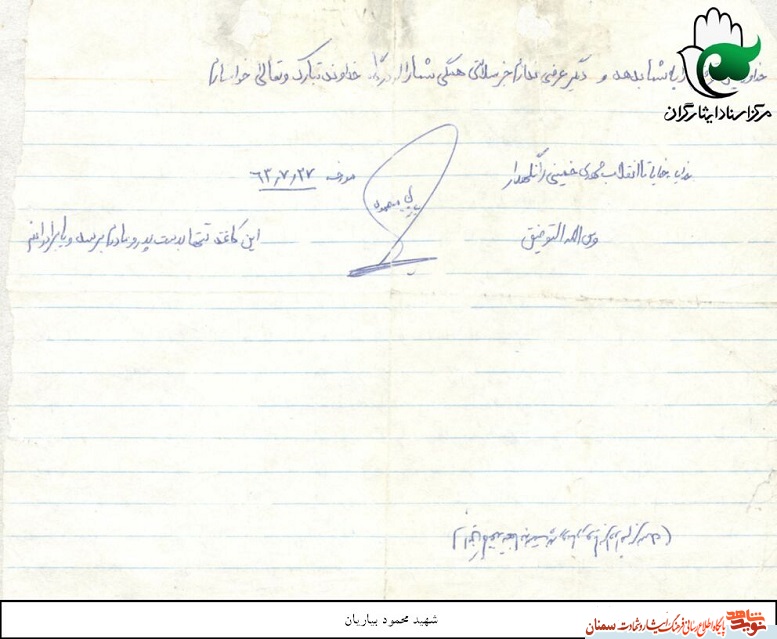 مرکز اسناد ایثارگران
به شما بدهد و دیگر عرضی ندارم جز سلامتی همگی شما از درگاه خداوند تبارک و تعالی خواسارم
خدایا خدایا تا انقلاب مهدی خمینی را نگهدار
مورخه ۶۳٫۷٫۲۷
و من الله التوفیق
محمود
این کاغذ تنها بدست پدر و مادرم برسد و یا برادرانم
شهید محمود بیاریان
نوید شاهد
پایگاه اطلاع رسانی فرهنگ ایثار و شهادت سمنان